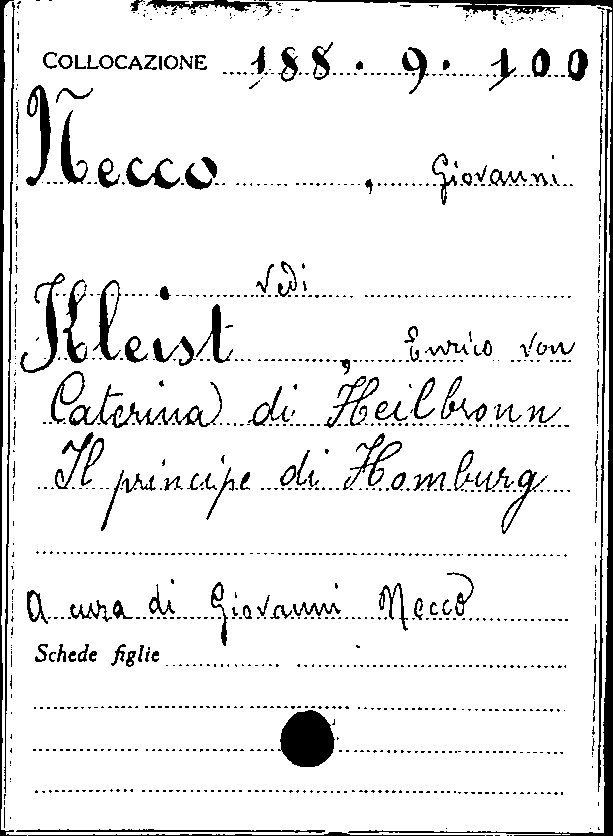 COLLOCAZIONE 188. 9. 100
Necco, Giovanni
Vedi
Kleist, Enrico von
Caterina di Heilbronn
Il principe di Homburg
A cura di Giovanni Necco
Schede figlie